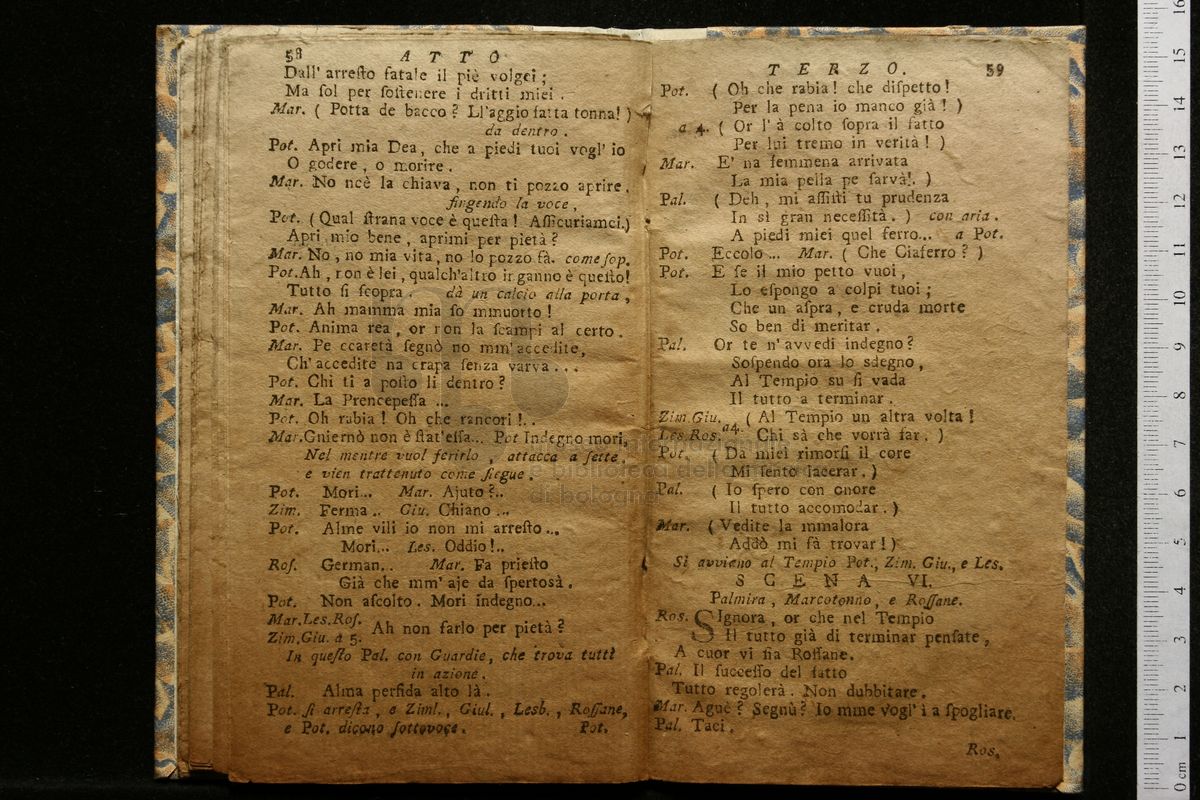 58 ATTO
Dall' arreſto fatale il piè volgei ;
Ma ſol per ſoſtenere i dritti miei .
Mar. ( Potta de bacco ? Ll'aggio fatta tonna! )
da dentro .
Pot. Apri mia Dea , che a piedi tuoi vogl' io
O godere , o morire .
Mar. No ncè la chiava , non ti pozzo aprire .
fingendo la voce ,
Pot. ( Qual ſtrana voce è queſta ! Aſſicuriamci.)
Apri mio bene , aprimi per pietà ?
Mar. No , no mia vita , no lo pozzo fà. come ſop.
Pot. Ah , non è lei , qualch'altro inganno è queſto!
Tutto ſi ſcopra . dà un calcio alla porta ,
Mar. Ah mamma mia ſo mmuorto !
Pot. Anima rea , or non la ſcampi al certo .
Mar. Pe ccaretà ſegnò no mm' accedite ,
Ch' accedite na crapa ſenza varva ...
Pot. Chi ti a poſto lì dentro ?
Mar. La Prencepeſſa ...
Pot. Oh rabia ! Oh che rancori !..
Mar. Gniernò non è ſtat'eſſa... Pot Indegno mori,
Nel mentre vuol ferirlo , attacca a ſette ,
e vien trattenuto come ſiegue .
Pot. Mori... Mar. Ajuto ?..
Zim. Ferma .. Giu. Chiano ...
Pot. Alme vili io non mi arreſto ...
Mori... Les. Oddio !..
Roſ. German... Mar. Fa prieſto
Già che mm' aje da ſpertosà .
Pot. Non aſcolto . Mori indegno...
Mar.Les.Roſ.
Zim.Giu. a 5. Ah non farlo per pietà ?
In queſto Pal. con Guardie, che trova tutti
in azione .
Pal. Alma perfida alto là .
Pot. ſi arreſta , e Ziml., Giul. , Lesb. , Roſſane,
e Pot. dicono ſottovoce . Pot.
TERZO. 59
Pot. ( Oh che rabia ! che diſpetto !
Per la pena io manco già ! )
a 4. ( Or l' à colto ſopra il fatto
Per lui tremo in verità ! )
Mar. E' na femmena arrivata
La mia pella pe ſarvà!. )
Pal. ( Deh , mi aſſiſti tu prudenza
In sì gran neceſſità . ) con aria .
A piedi miei quel ferro... a Pot.
Pot. Eccolo ... Mar. ( Che Giaferro ? )
Pot. E ſe il mio petto vuoi ,
Lo eſpongo a colpi tuoi ;
Che un aſpra , e cruda morte
So ben di meritar .
Pal. Or te n' avvedi indegno ?
Soſpendo ora lo sdegno ,
Al Tempio su ſi vada
Il tutto a terminar .
Zim.Giu. ( Al Tempio un altra volta !
Les.Ros. a4. Chi sà che vorrà far . )
Pot. ( Da miei rimorſi il core
Mi ſento lacerar . )
Pal. ( Io ſpero con onore
Il tutto accomodar . )
Mar. ( Vedite la mmalora
Addò mi fà trovar ! )
Sì avviano al Tempio Pot., Zim. Giu., e Les.
SCENA VI.
Palmira , Marcotonno , e Roſſane.
Ros. SIgnora , or che nel Tempio
Il tutto già di terminar penſate ,
A cuor vi ſia Roſſane .
Pal. Il ſucceſſo del fatto
Tutto regolerà . Non dubbitare .
Mar. Aguè ? Segnù ? Io mme vogl' ì a ſpogliare.
Pal. Taci .
Ros.